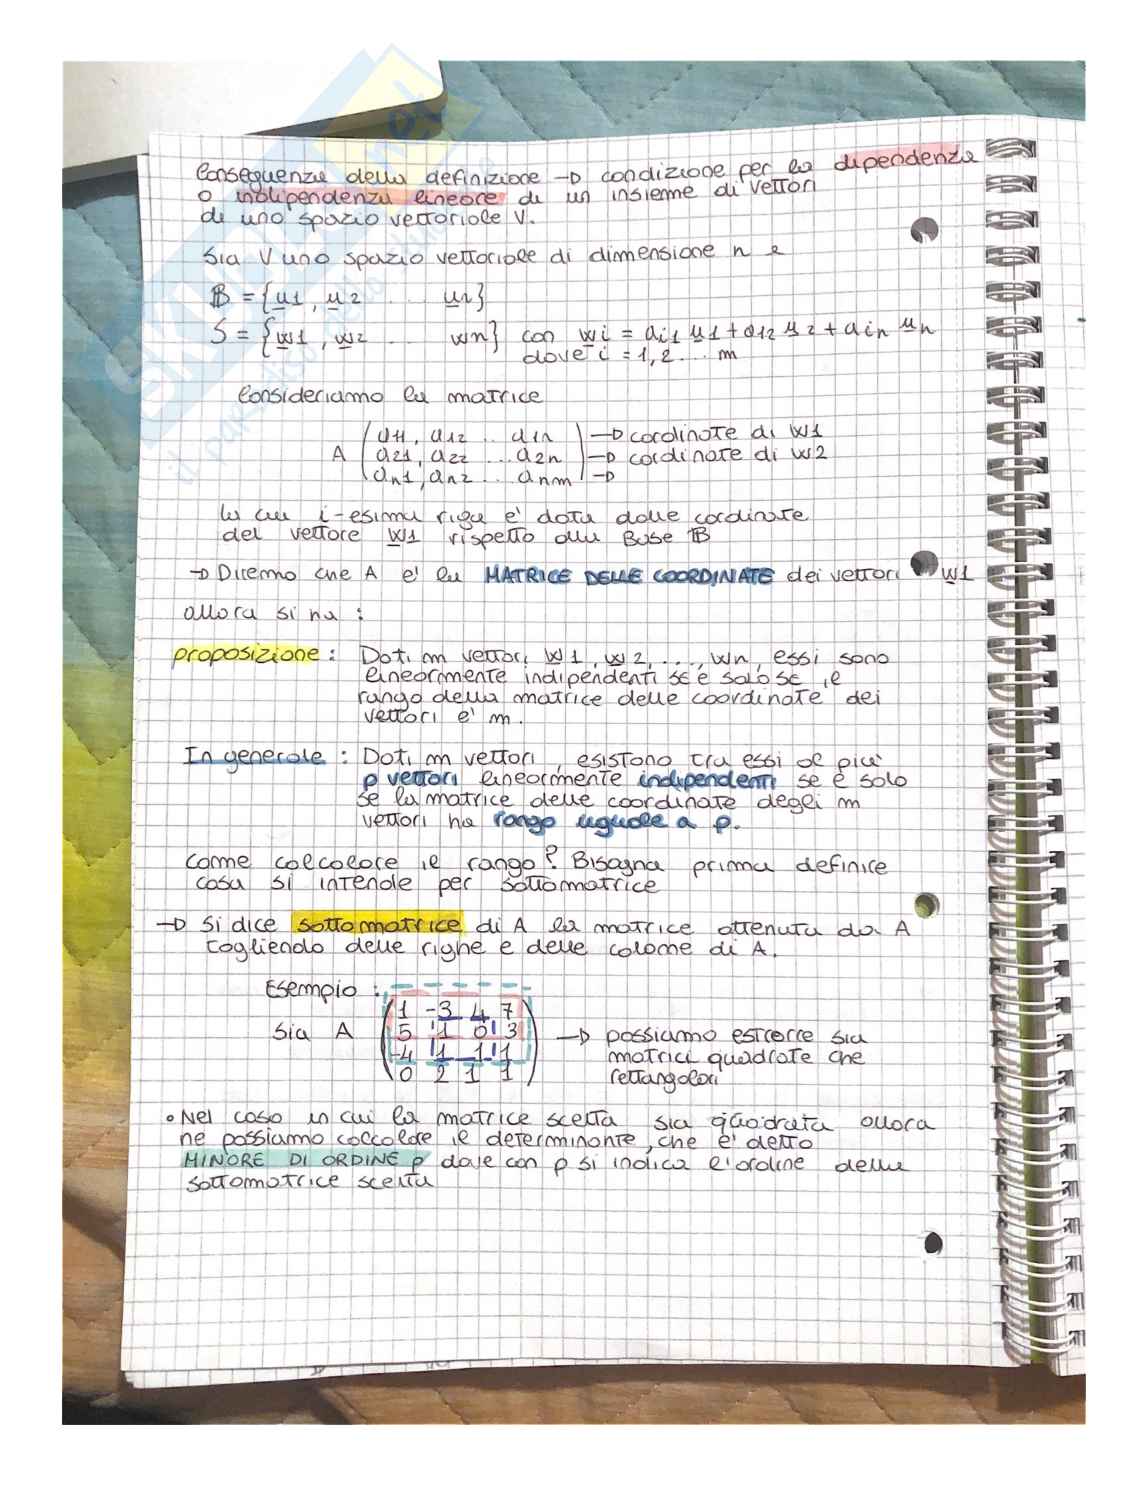 Conseguenza della definizione → condizione per la dipendenza
o indipendenza lineare di un insieme di vettori
di uno spazio vettoriale V.
Sia V uno spazio vettoriale di dimensione n e
B = {u1, u2 ... un}
S = {w1, w2 ... wn} con wi = ai1 u1 + a12 u2 + ain un
dove i = 1, 2 ... m
Consideriamo la matrice
A ( a11, a12 .. a1n ) → cordinate di w1
( a21, a22 ... a2n ) → cordinate di w2
( an1, an2 ... anm ) →
la cui i-esima riga e' data dalle cordinate
del vettore w1 rispetto alla Base B
→ Diremo che A e' la MATRICE DELLE COORDINATE dei vettori w1
allora si ha :
proposizione : Dati m vettori w1, w2, ..., wn, essi sono
linearmente indipendenti se e solo se il
rango della matrice delle coordinate dei
vettori e' m.
In generale : Dati m vettori, esistono tra essi al piu'
p vettori linearmente indipendenti se e solo
se la matrice delle coordinate degli m
vettori ha rango uguale a p.
Come calcolare il rango? Bisogna prima definire
cosa si intende per sottomatrice
→ Si dice sottomatrice di A la matrice ottenuta da A
togliendo delle righe e delle colonne di A.
Esempio :
Sia A ( 1 -3 4 7 )
( 5 1 0 3 ) → possiamo estrarre sia
( -4 1 1 1 ) matrici quadrate che
( 0 2 1 1 ) rettangolari
• Nel caso in cui la matrice scelta sia quadrata allora
ne possiamo calcolare il determinante, che e' detto
MINORE DI ORDINE p dove con p si indica l'ordine della
sottomatrice scelta
SKUOLA.net
il paradiso dello studente